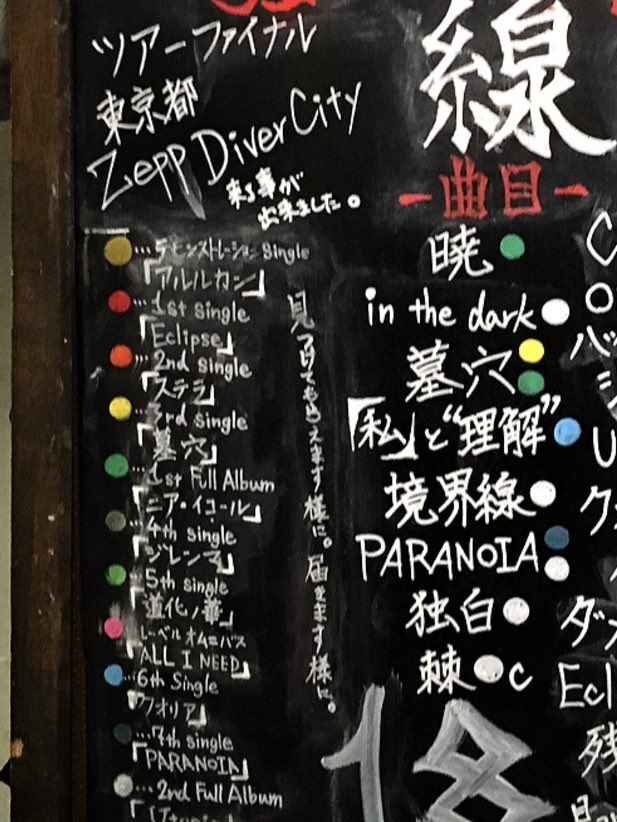 ツアーファイナル
東京都
Zepp DiverCity
来る事が
出来ました。
…デモンストレーション Single
「アルルカン」
…1st single
「Eclipse」
…2nd single
「ステラ」
…3rd single
「墓穴」
…1st Full Album
「ニア・イコール」
…4th single
「ジレンマ」
…5th single
「道化ノ華」
レーベルオムニバス
「ALL I NEED」
…6th Single
「クオリア」
…7th single
「PARANOIA」
…2nd Full Album
見つけてもらえます様に。届きます様に。
線
-曲目-
暁
in the dark
墓穴
「私」と“理解”
境界線
PARANOIA
独白
棘 C
18
C
O
ハッ
U
ク
ダメ
Ecl
残